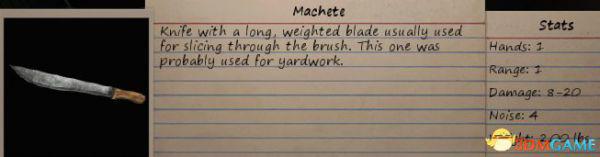 Machete
Knife with a long, weighted blade usually used
for slicing through the brush. This one was
probably used for yardwork.
Stats
Hands: 1
Range: 1
Damage: 8-20
Noise: 4
Weight: 2.00 lbs
3DMGAME